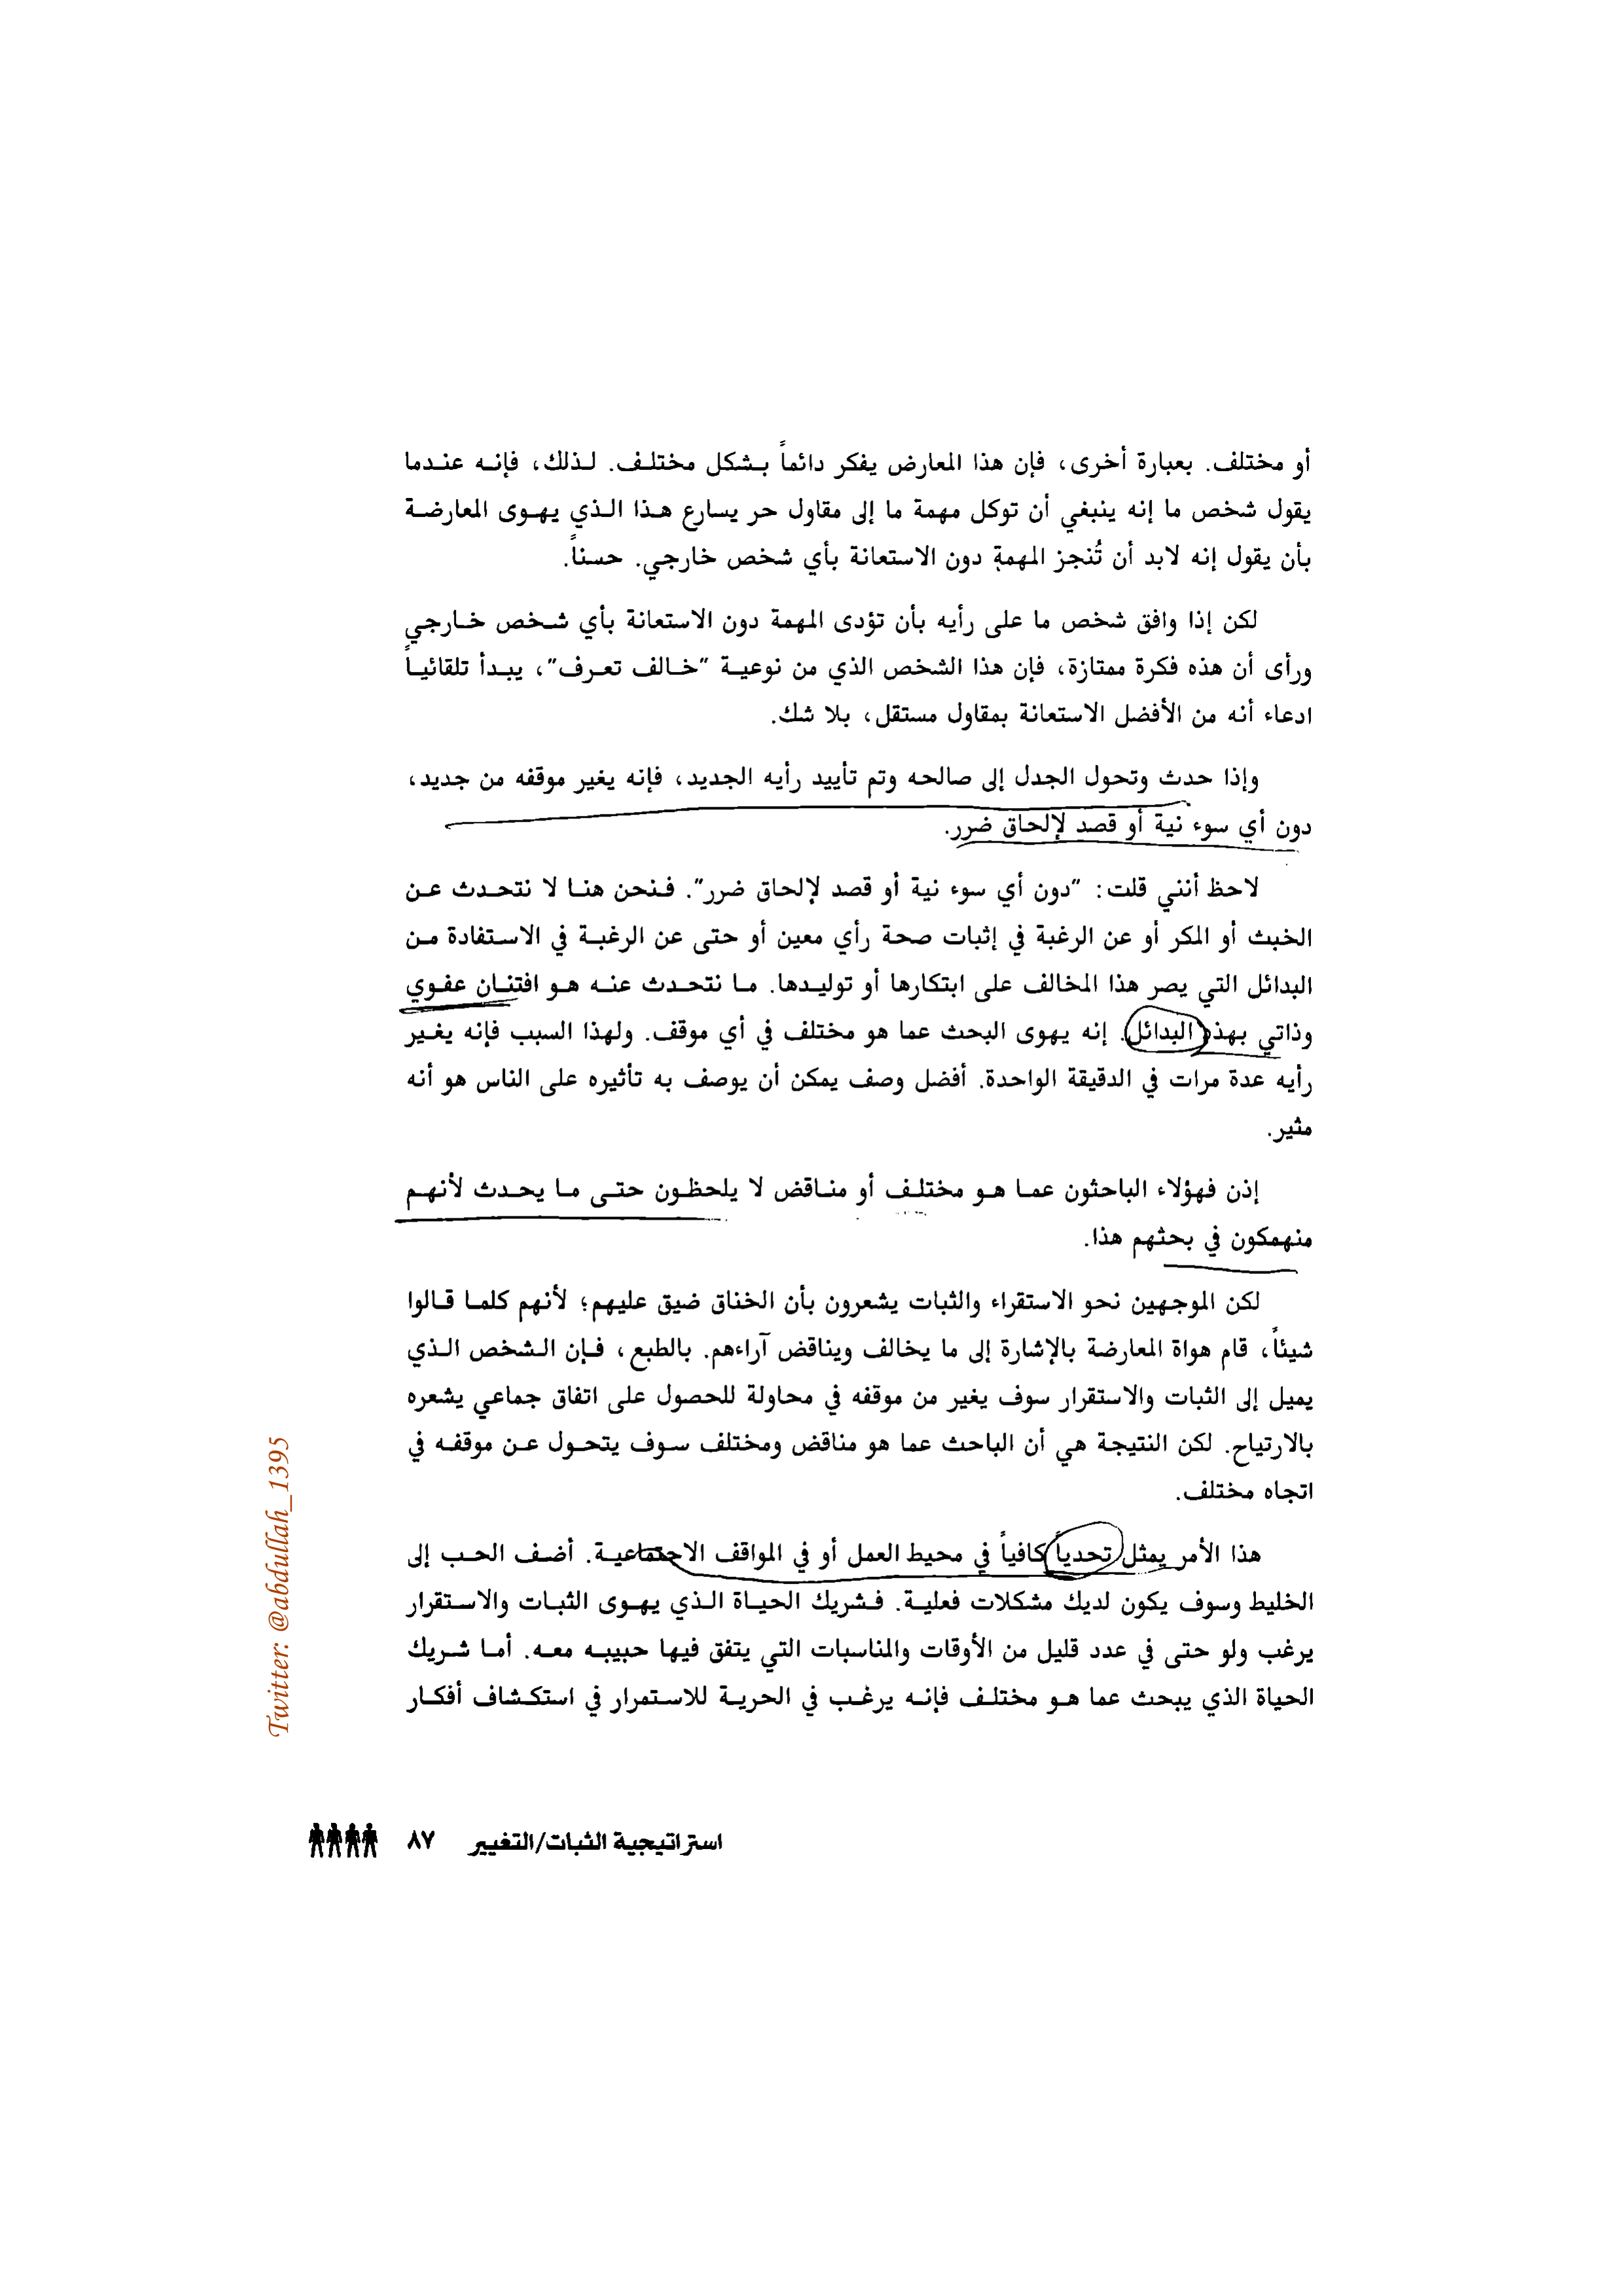 أو مختلف. بعبارة أخرى، فإن هذا المعارض يفكر دائماً بشكل مختلف. لذلك، فإنه عندما
يقول شخص ما إنه ينبغي أن توكل مهمة ما إلى مقاول حر يسارع هذا الذي يهوى المعارضة
بأن يقول إنه لابد أن تُنجز المهمة دون الاستعانة بأي شخص خارجي. حسناً.
لكن إذا وافق شخص ما على رأيه بأن تؤدى المهمة دون الاستعانة بأي شخص خارجي
ورأى أن هذه فكرة ممتازة، فإن هذا الشخص الذي من نوعية "خالف تعرف"، يبدأ تلقائياً
ادعاء أنه من الأفضل الاستعانة بمقاول مستقل، بلا شك.
وإذا حدث وتحول الجدل إلى صالحه وتم تأييد رأيه الجديد، فإنه يغير موقفه من جديد،
دون أي سوء نية أو قصد لإلحاق ضرر.
لاحظ أنني قلت: "دون أي سوء نية أو قصد لإلحاق ضرر". فنحن هنا لا نتحدث عن
الخبث أو المكر أو عن الرغبة في إثبات صحة رأي معين أو حتى عن الرغبة في الاستفادة من
البدائل التي يصر هذا المخالف على ابتكارها أو توليدها. ما نتحدث عنه هو افتنان عفوي
وذاتي بهذه البدائل. إنه يهوى البحث عما هو مختلف في أي موقف. ولهذا السبب فإنه يغير
رأيه عدة مرات في الدقيقة الواحدة. أفضل وصف يمكن أن يوصف به تأثيره على الناس هو أنه
مثير.
إذن فهؤلاء الباحثون عما هو مختلف أو مناقض لا يلحظون حتى ما يحدث لأنهم
منهمكون في بحثهم هذا.
لكن الموجهين نحو الاستقراء والثبات يشعرون بأن الخناق ضيق عليهم؛ لأنهم كلما قالوا
شيئاً، قام هواة المعارضة بالإشارة إلى ما يخالف ويناقض آراءهم. بالطبع، فإن الشخص الذي
يميل إلى الثبات والاستقرار سوف يغير من موقفه في محاولة للحصول على اتفاق جماعي يشعره
بالارتياح. لكن النتيجة هي أن الباحث عما هو مناقض ومختلف سوف يتحول عن موقفه في
اتجاه مختلف.
هذا الأمر يمثل تحدياً كافياً في محيط العمل أو في المواقف الاجتماعية. أضف الحب إلى
الخليط وسوف يكون لديك مشكلات فعلية. فشريك الحياة الذي يهوى الثبات والاستقرار
يرغب ولو حتى في عدد قليل من الأوقات والمناسبات التي يتفق فيها حبيبه معه. أما شريك
الحياة الذي يبحث عما هو مختلف فإنه يرغب في الحرية للاستمرار في استكشاف أفكار
استراتيجية الثبات/التغيير ٨٧
Twitter: @abdullah_1395